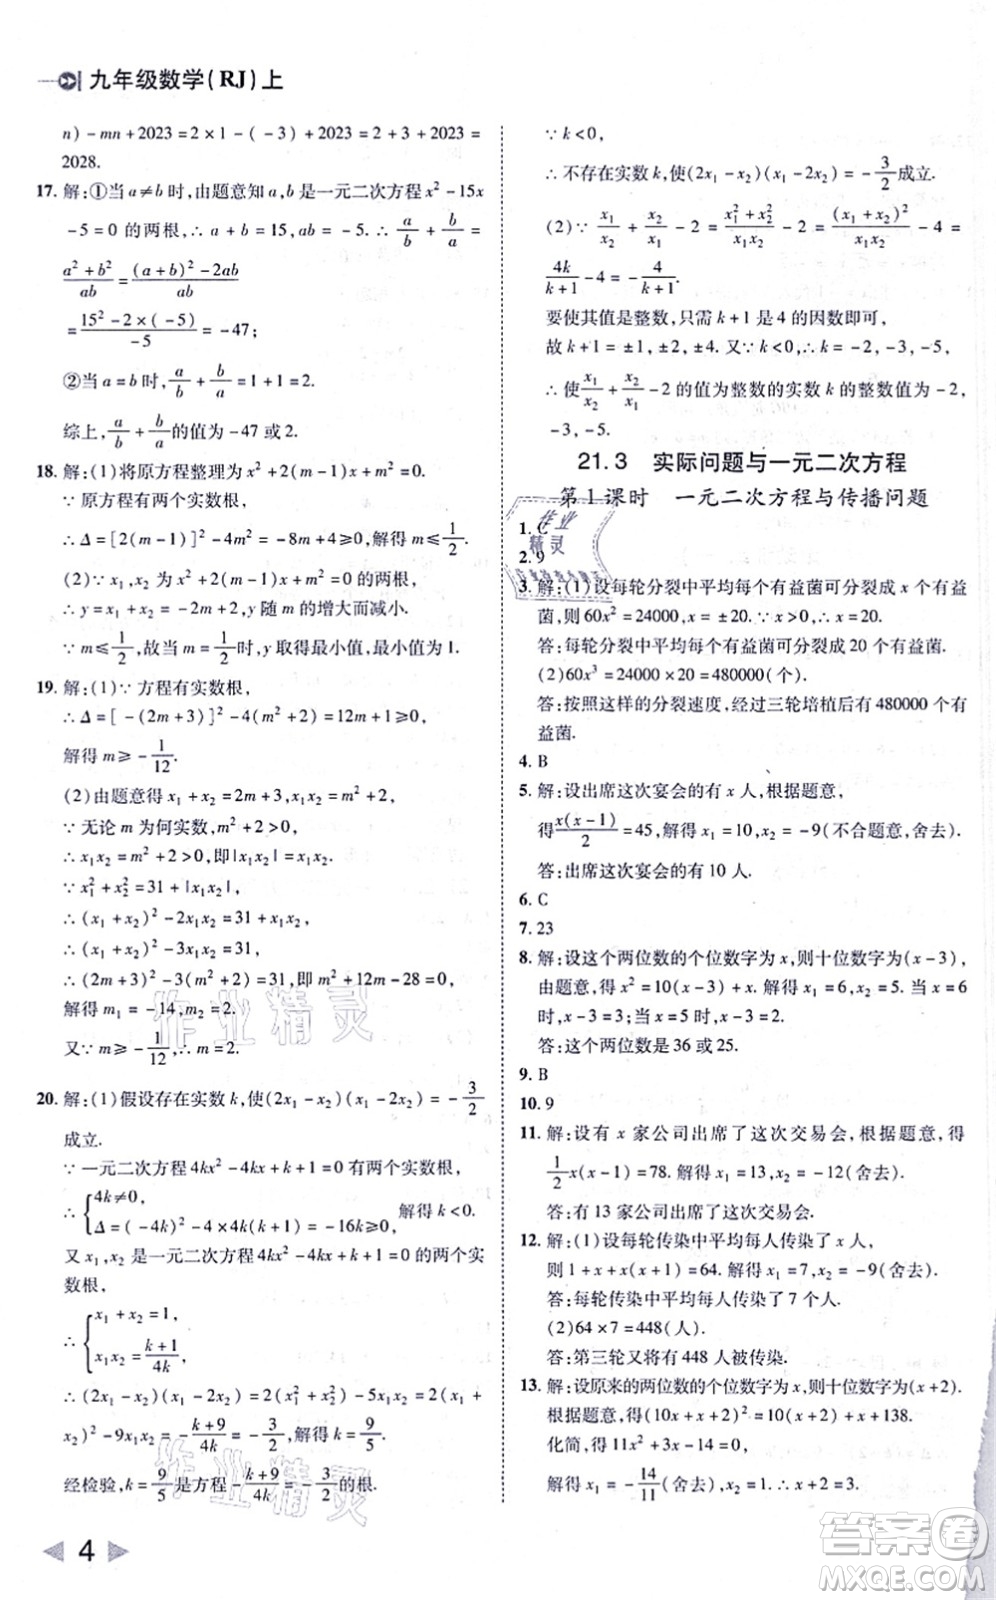 九年级数学(RJ)上
n) - mn + 2023 = 2 × 1 - ( - 3) + 2023 = 2 + 3 + 2023 =
2028.
17. 解:①当 a≠b 时,由题意知 a,b 是一元二次方程 x² - 15x
- 5 = 0 的两根,∴ a + b = 15,ab = - 5. ∴ a/b + b/a =
(a² + b²)/ab = ((a + b)² - 2ab)/ab
= (15² - 2 × ( - 5))/-5 = - 47;
②当 a = b 时,a/b + b/a = 1 + 1 = 2.
综上,a/b + b/a 的值为 -47 或2.
18. 解:(1)将原方程整理为 x² + 2(m - 1)x + m² = 0.
∵ 原方程有两个实数根,
∴ Δ = [2(m - 1)]² - 4m² = - 8m + 4≥0,解得 m≤1/2.
(2)∵ x₁,x₂ 为 x² + 2(m - 1)x + m² = 0 的两根,
∴ y = x₁ + x₂ = - 2m + 2,y 随 m 的增大而减小.
∵ m≤1/2,故当 m = 1/2 时,y 取得最小值,最小值为 1.
19. 解:(1)∵ 方程有实数根,
∴ Δ = [ - (2m + 3)]² - 4(m² + 2) = 12m + 1≥0,
解得 m≥ - 1/12.
(2)由题意得 x₁ + x₂ = 2m + 3,x₁x₂ = m² + 2,
∵ 无论 m 为何实数,m² + 2 > 0,
∴ x₁x₂ = m² + 2 > 0,即|x₁x₂| = x₁x₂
∵ x₁² + x₂² = 31 + |x₁x₂|,
∴ (x₁ + x₂)² - 2x₁x₂ = 31 + x₁x₂,
∴ (x₁ + x₂)² - 3x₁x₂ = 31,
∴ (2m + 3)² - 3(m² + 2) = 31,即 m² + 12m - 28 = 0,
解得 m₁ = - 14,m₂ = 2.
又∵ m≥ - 1/12,∴ m = 2.
20. 解:(1)假设存在实数 k,使(2x₁ - x₂)(x₁ - 2x₂) = - 3/2
成立.
∵ 一元二次方程 4kx² - 4kx + k + 1 = 0 有两个实数根,
∴ { 4k≠0, Δ = ( - 4k)² - 4 × 4k(k + 1) = - 16k≥0, 解得 k < 0.
又 x₁,x₂ 是一元二次方程 4kx² - 4kx + k + 1 = 0 的两个实
数根,
∴ { x₁ + x₂ = 1, x₁x₂ = (k + 1)/4k
∴ (2x₁ - x₂)(x₁ - 2x₂) = 2(x₁² + x₂²) - 5x₁x₂ = 2(x₁ +
x₂)² - 9x₁x₂ = - (k + 9)/4k = - 3/2,解得 k = 9/5.
经检验,k = 9/5 是方程 - (k + 9)/4k = - 3/2 的根.
∵ k < 0,
∴ 不存在实数 k,使(2x₁ - x₂)(x₁ - 2x₂) = - 3/2 成立.
(2)∵ x₁/x₂ + x₂/x₁ - 2 = (x₁² + x₂²)/x₁x₂ - 2 = (x₁ + x₂)²/x₁x₂ - 4 =
4k/(k + 1) - 4 = - 4/(k + 1).
要使其值是整数,只需 k + 1 是 4 的因数即可,
故 k + 1 = ±1, ±2, ±4. 又∵ k < 0,∴ k = -2, -3, -5,
∴ 使 x₁/x₂ + x₂/x₁ - 2 的值为整数的实数 k 的整数值为 - 2,
-3, -5.
21.3 实际问题与一元二次方程
第 1 课时 一元二次方程与传播问题
1. C
2. 9
3. 解:(1)设每轮分裂中平均每个有益菌可分裂成 x 个有益
菌,则 60x² = 24000,x = ± 20. ∵ x > 0,∴ x = 20.
答:每轮分裂中平均每个有益菌可分裂成 20 个有益菌.
(2)60x³ = 24000 × 20 = 480000(个)
答:按照这样的分裂速度,经过三轮培植后有 480000 个有
益菌.
4. B
5. 解:设出席这次宴会的有 x 人,根据题意,
得 x(x - 1)/2 = 45,解得 x₁ = 10,x₂ = - 9(不合题意,舍去).
答:出席这次宴会的有 10 人.
6. C
7. 23
8. 解:设这个两位数的个位数字为 x,则十位数字为(x - 3),
由题意,得 x² = 10(x - 3) + x,解得 x₁ = 6,x₂ = 5. 当 x = 6
时,x - 3 = 3;当 x = 5 时,x - 3 = 2.
答:这个两位数是 36 或 25.
9. B
10. 9
11. 解:设有 x 家公司出席了这次交易会,根据题意,得
1/2 x(x - 1) = 78. 解得 x₁ = 13,x₂ = - 12(舍去).
答:有 13 家公司出席了这次交易会.
12. 解:(1)设每轮传染中平均每人传染了 x 人,
则 1 + x + x(x + 1) = 64. 解得 x₁ = 7,x₂ = - 9(舍去).
答:每轮传染中平均每人传染了 7 个人.
(2)64 × 7 = 448(人).
答:第三轮又将有 448 人被传染.
13. 解:设原来的两位数的个位数字为 x,则十位数字为(x + 2).
根据题意,得(10x + x + 2)² = 10(x + 2) + x + 138.
化简,得 11x² + 3x - 14... 
解得 x₁ = - 14/11(舍去),x₂ = 2. x + 2 = 3.
4
作业精灵
作业精灵
作业精灵
答案圈
MXQE.COM